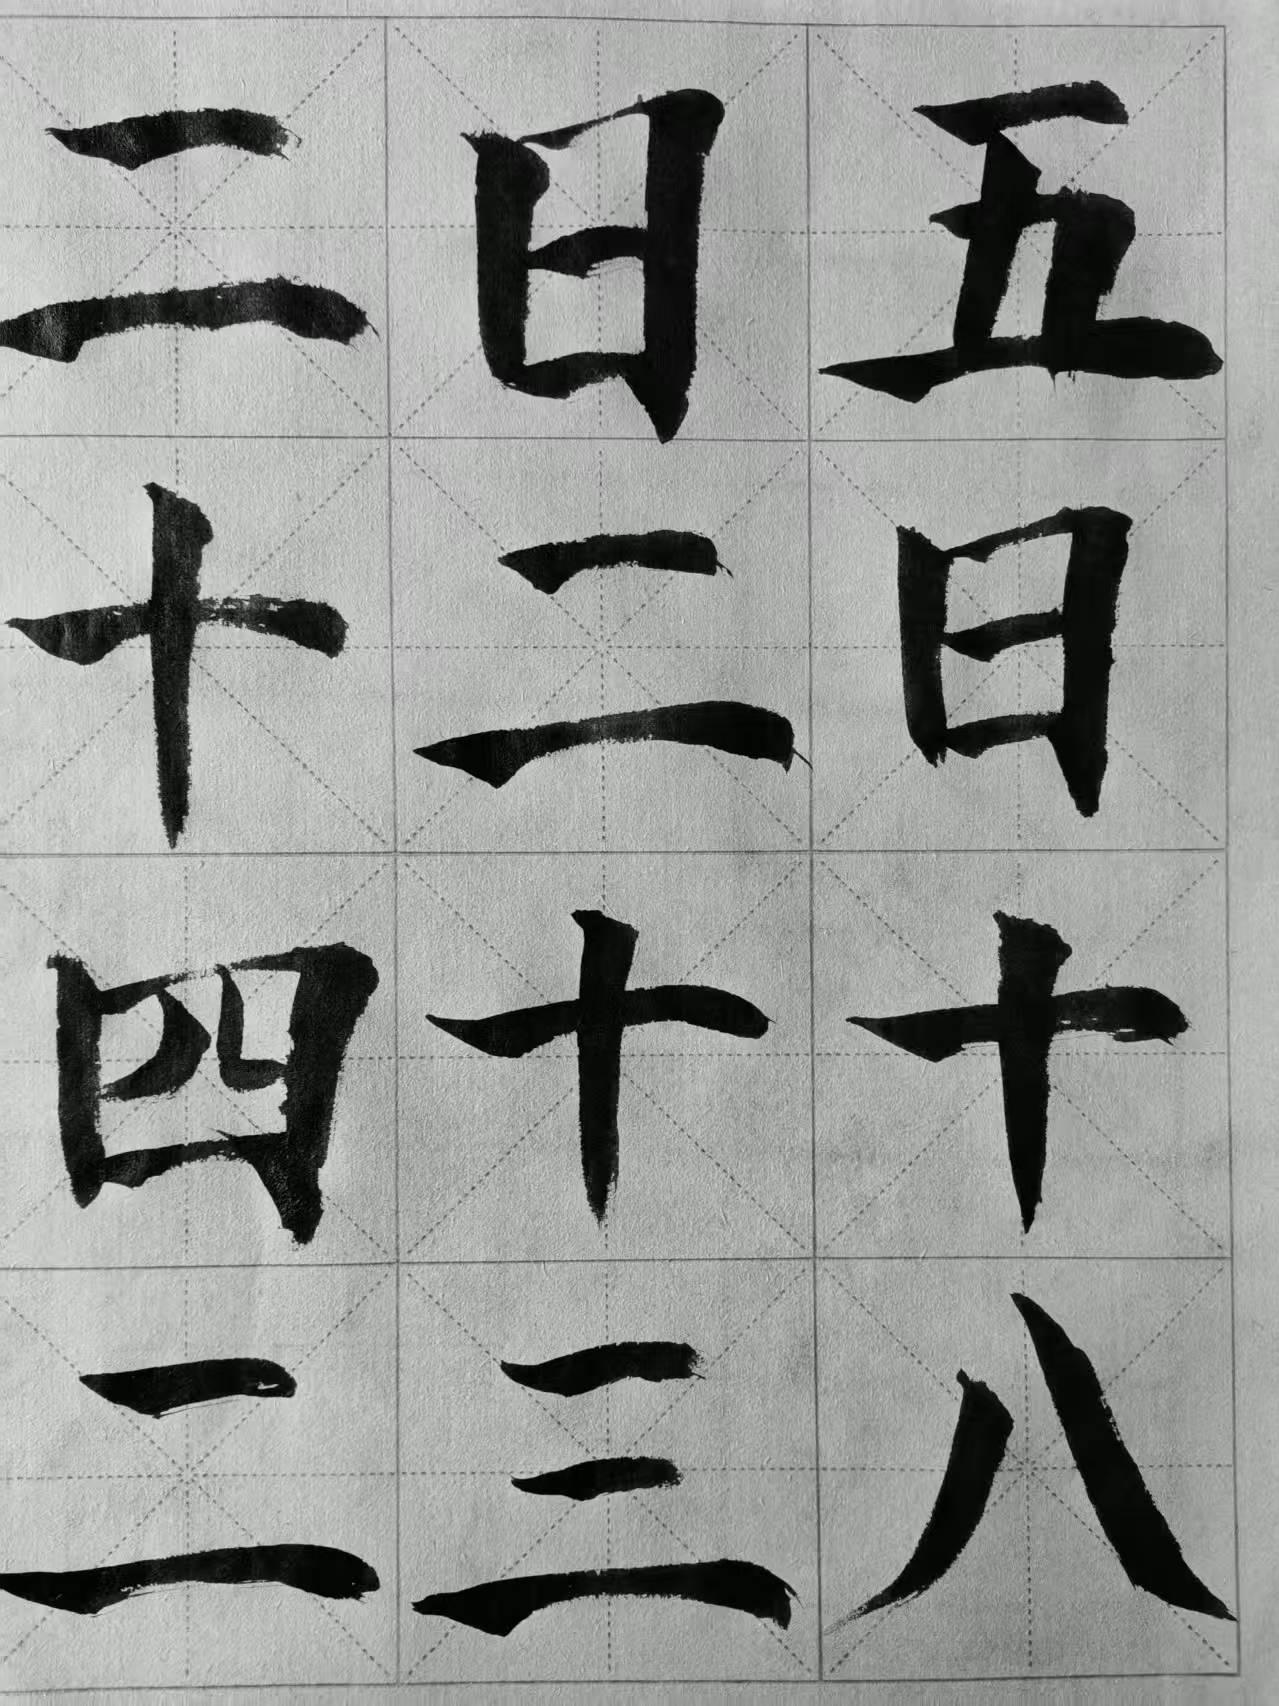 五日十八
日二十三
二十四二